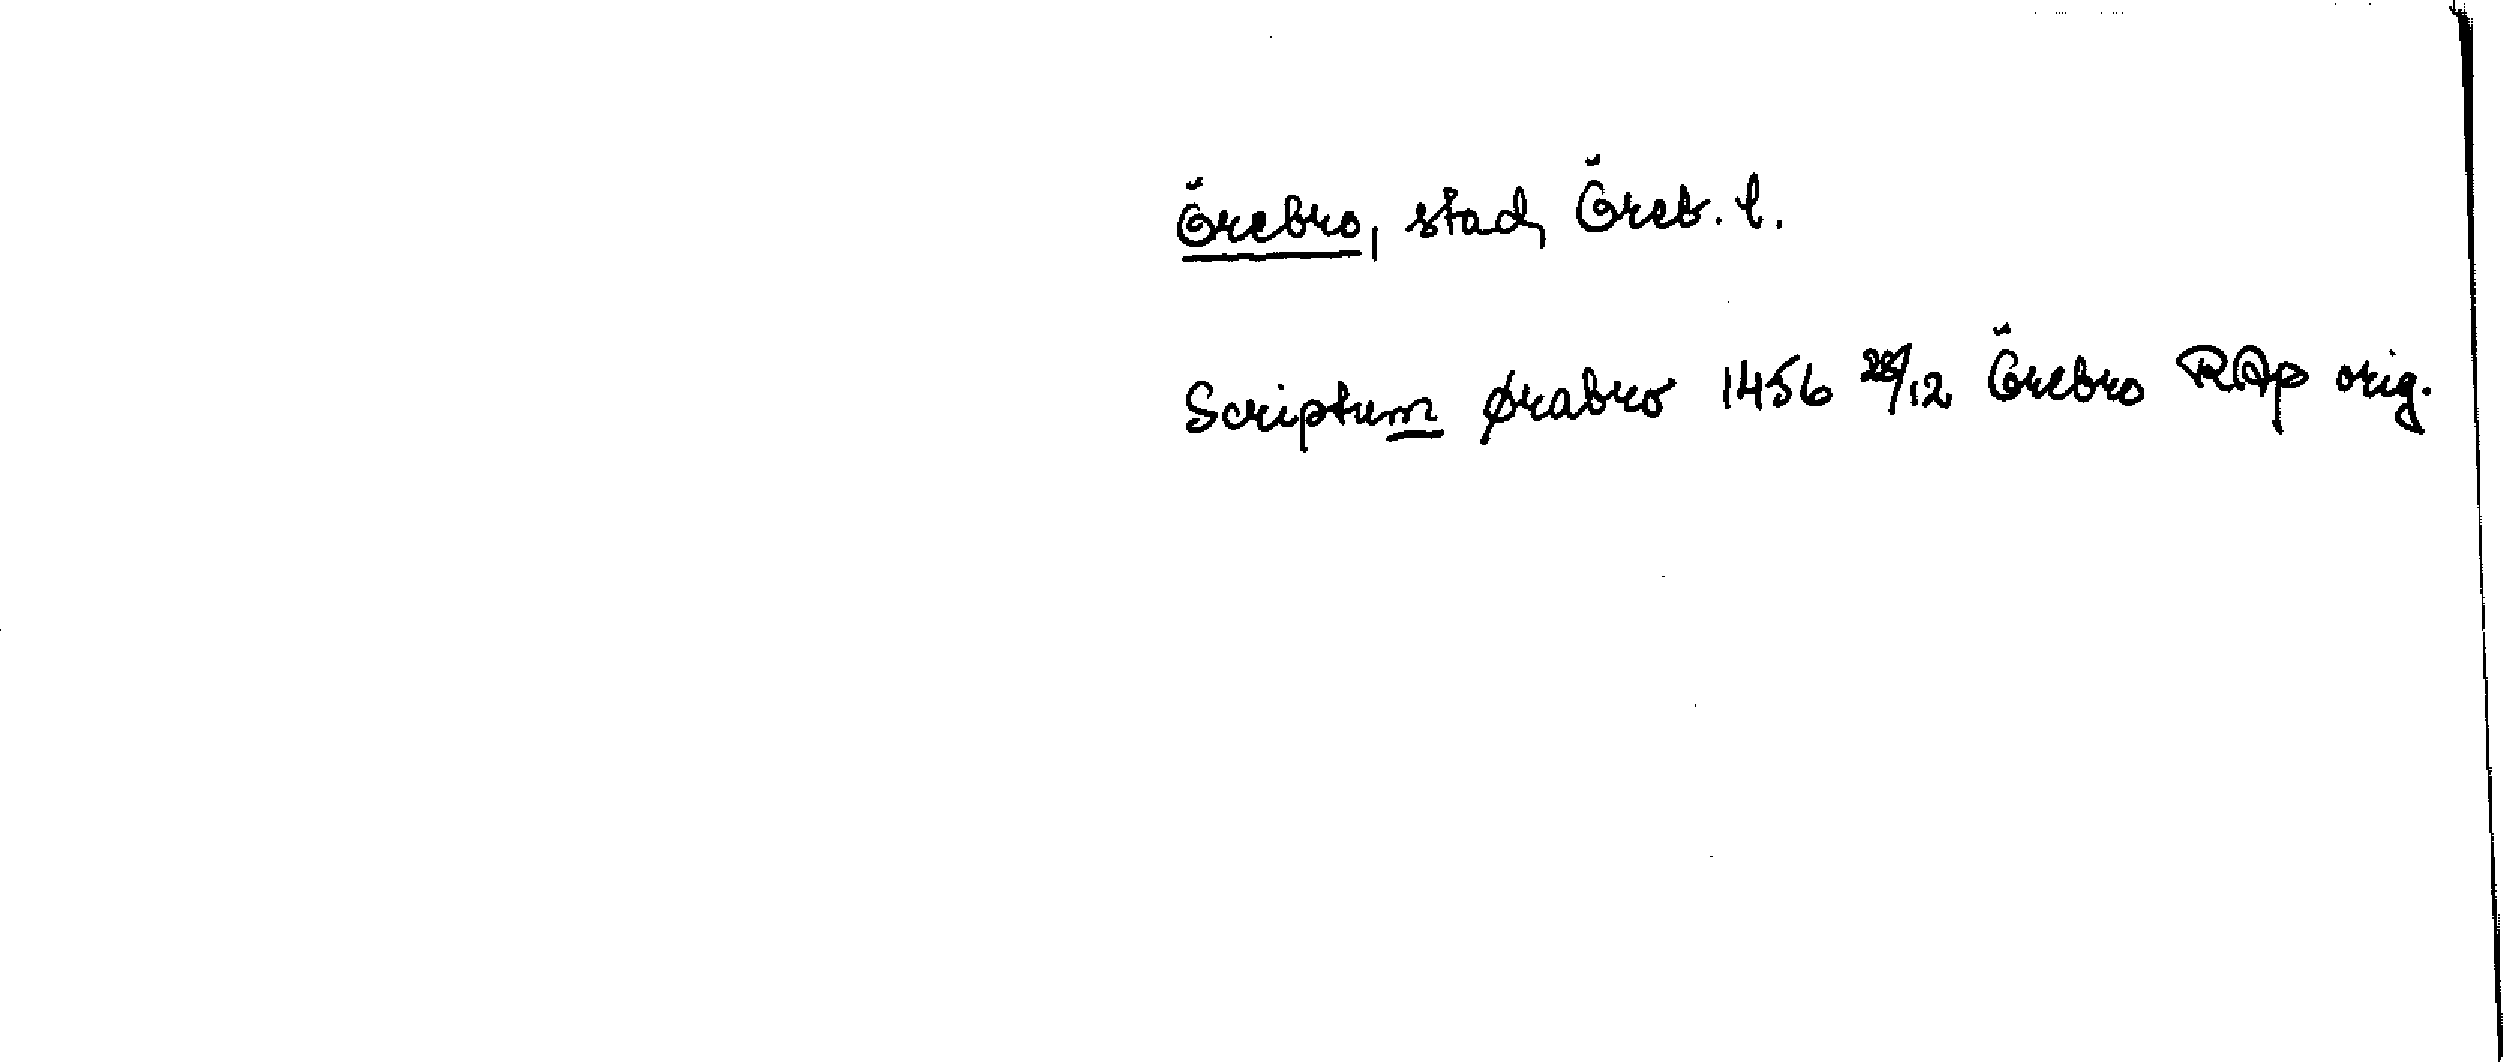 Örebro, stad, Öreb. l.
Scriptum ørabro 1456 28/12 Örebro RAp orig.